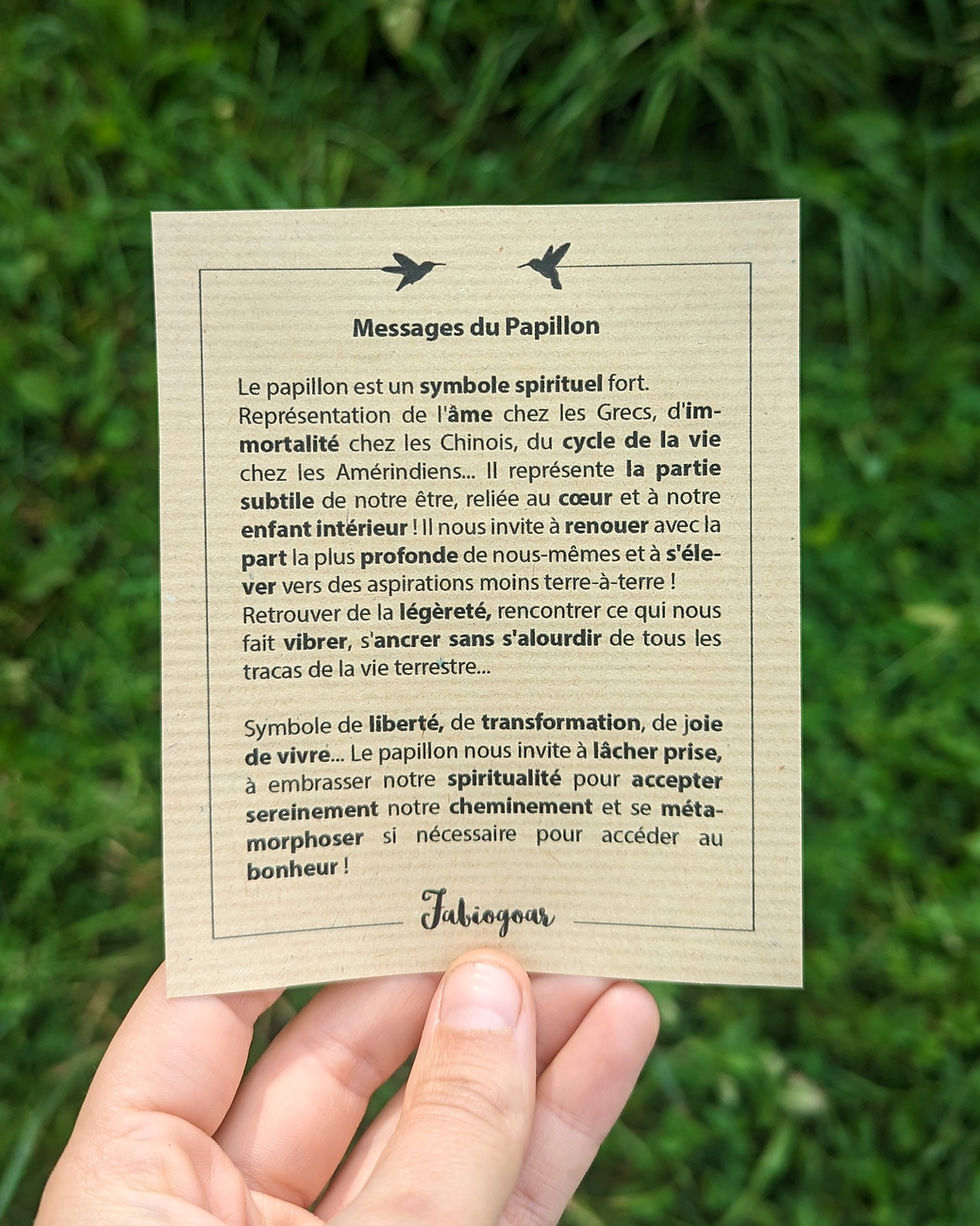 Messages du Papillon
Le papillon est un symbole spirituel fort.
Représentation de l'âme chez les Grecs, d'im-
mortalité chez les Chinois, du cycle de la vie
chez les Amérindiens... Il représente la partie
subtile de notre être, reliée au cœur et à notre
enfant intérieur ! Il nous invite à renouer avec la
part la plus profonde de nous-mêmes et à s'éle-
ver vers des aspirations moins terre-à-terre !
Retrouver de la légèreté, rencontrer ce qui nous
fait vibrer, s'ancrer sans s'alourdir de tous les
tracas de la vie terrestre...
Symbole de liberté, de transformation, de joie
de vivre... Le papillon nous invite à lâcher prise,
à embrasser notre spiritualité pour accepter
sereinement notre cheminement et se méta-
morphoser si nécessaire pour accéder au
bonheur !
Fabiogoar